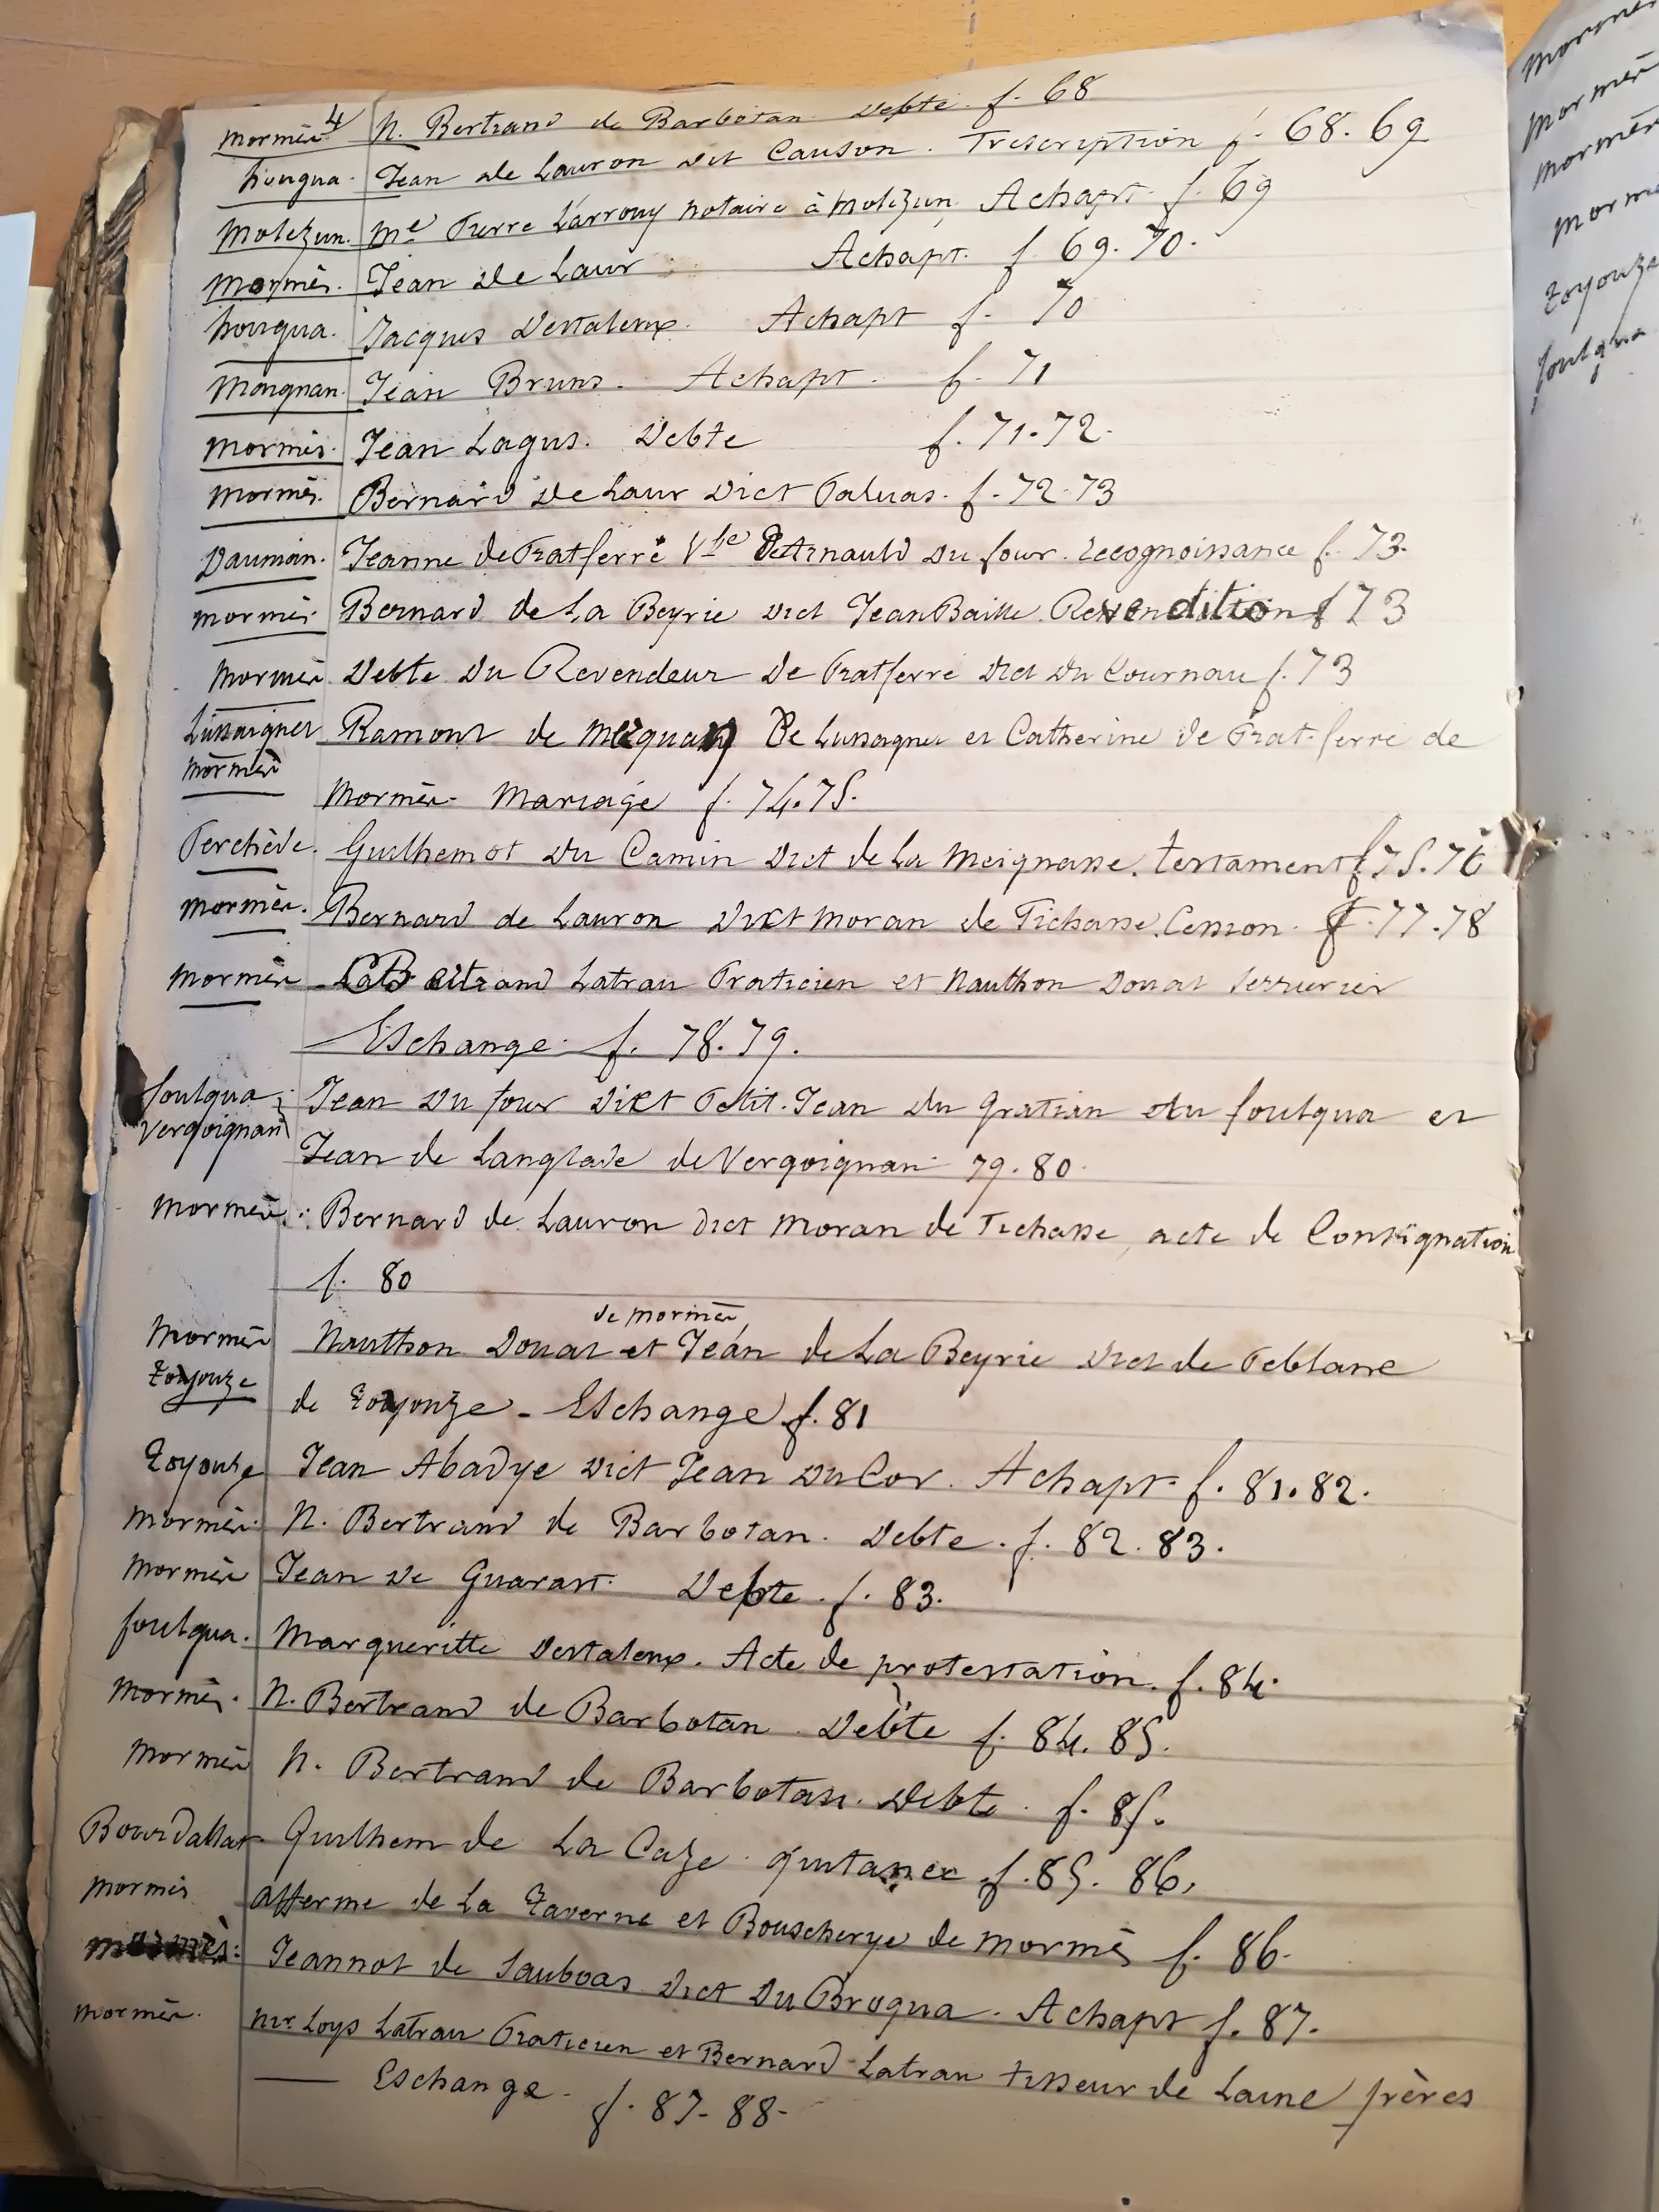 4
Mormès N. Bertrand de Barbotan Debte f. 68
houqua. Jean de Lauron dit Causon. Trescription f. 68. 69
Molezun. Me Pierre Larrouy notaire à Molezun. Achapt f. 69
Mormès. Jean De Laur Achapt. f. 69. 70.
houqua. Jacques Destaleux. Achapt f. 70
Morgnan. Jean Bruns. Achapt. f. 71
Mormès. Jean Lagus. Debte f. 71. 72.
Mormès. Bernard De Laur Dict Paluas. f. 72. 73
Daunian. Jeanne de Pratferré Vve De Arnauld Du four. recognoissance f. 73.
Mormès. Bernard de La Beyrie dict Jean Baille Revendition f 73
Mormès Debte Du Revendeur De Pratferré dict Du Cournau f. 73
Lussaignet Ramont de De Lussagnet et Catherine de Prat-ferré de
Mormès
Mormès. Mariage f. 74. 75.
Perchède. Guilhemot Du Camin Dict de La Meignasse. testament f 75. 76
Mormès. Bernard de Lauron Dict Moran de Tichasse. Cession. f. 77. 78
Mormès Bertrand Latrau Praticien et Nauthon Douat serrurier
Eschange. f. 78. 79.
foulqua; Jean Du four Dict Petit. Jean du Gratian du foulqua et
Vergoignan Jean de Langlade de Vergoignan 79. 80.
Mormès. Bernard de Lauron dict Moran de Tichasse, acte de Consignation
f. 80
de Mormès
Mormès Nauthon Douat et Jean de La Beyrie dict de Peblane
Toyouze de Toyouze - Eschange f. 81
Toyouze Jean Abadye dict Jean Du Cor. Achapt f. 81. 82.
Mormès. N. Bertrand de Barbotan. Debte. f. 82. 83.
Mormès Jean De Guarast. Debte. f. 83.
foulqua. Margueritte Destaleux. Acte de protestation. f. 84.
Mormès. N. Bertrand de Barbotan. Debte f. 84. 85.
Mormès N. Bertrand de Barbotan. Debte. f. 85.
Bourdallat Guilhem de La Caze. quitance f. 85. 86.
Mormès Afferme de La Taverne et Bouscherye de Mormès f. 86.
Mormès: Jeannot de Sauboas Dict Du Broqua. Achapt f. 87.
Mormès. Mr. Loys Latrau Praticien et Bernard Latrau tisseur de Laine frères
— Eschange. f. 87. 88.
Mormès
Mormès
Mormès
Toyouze
foulqua